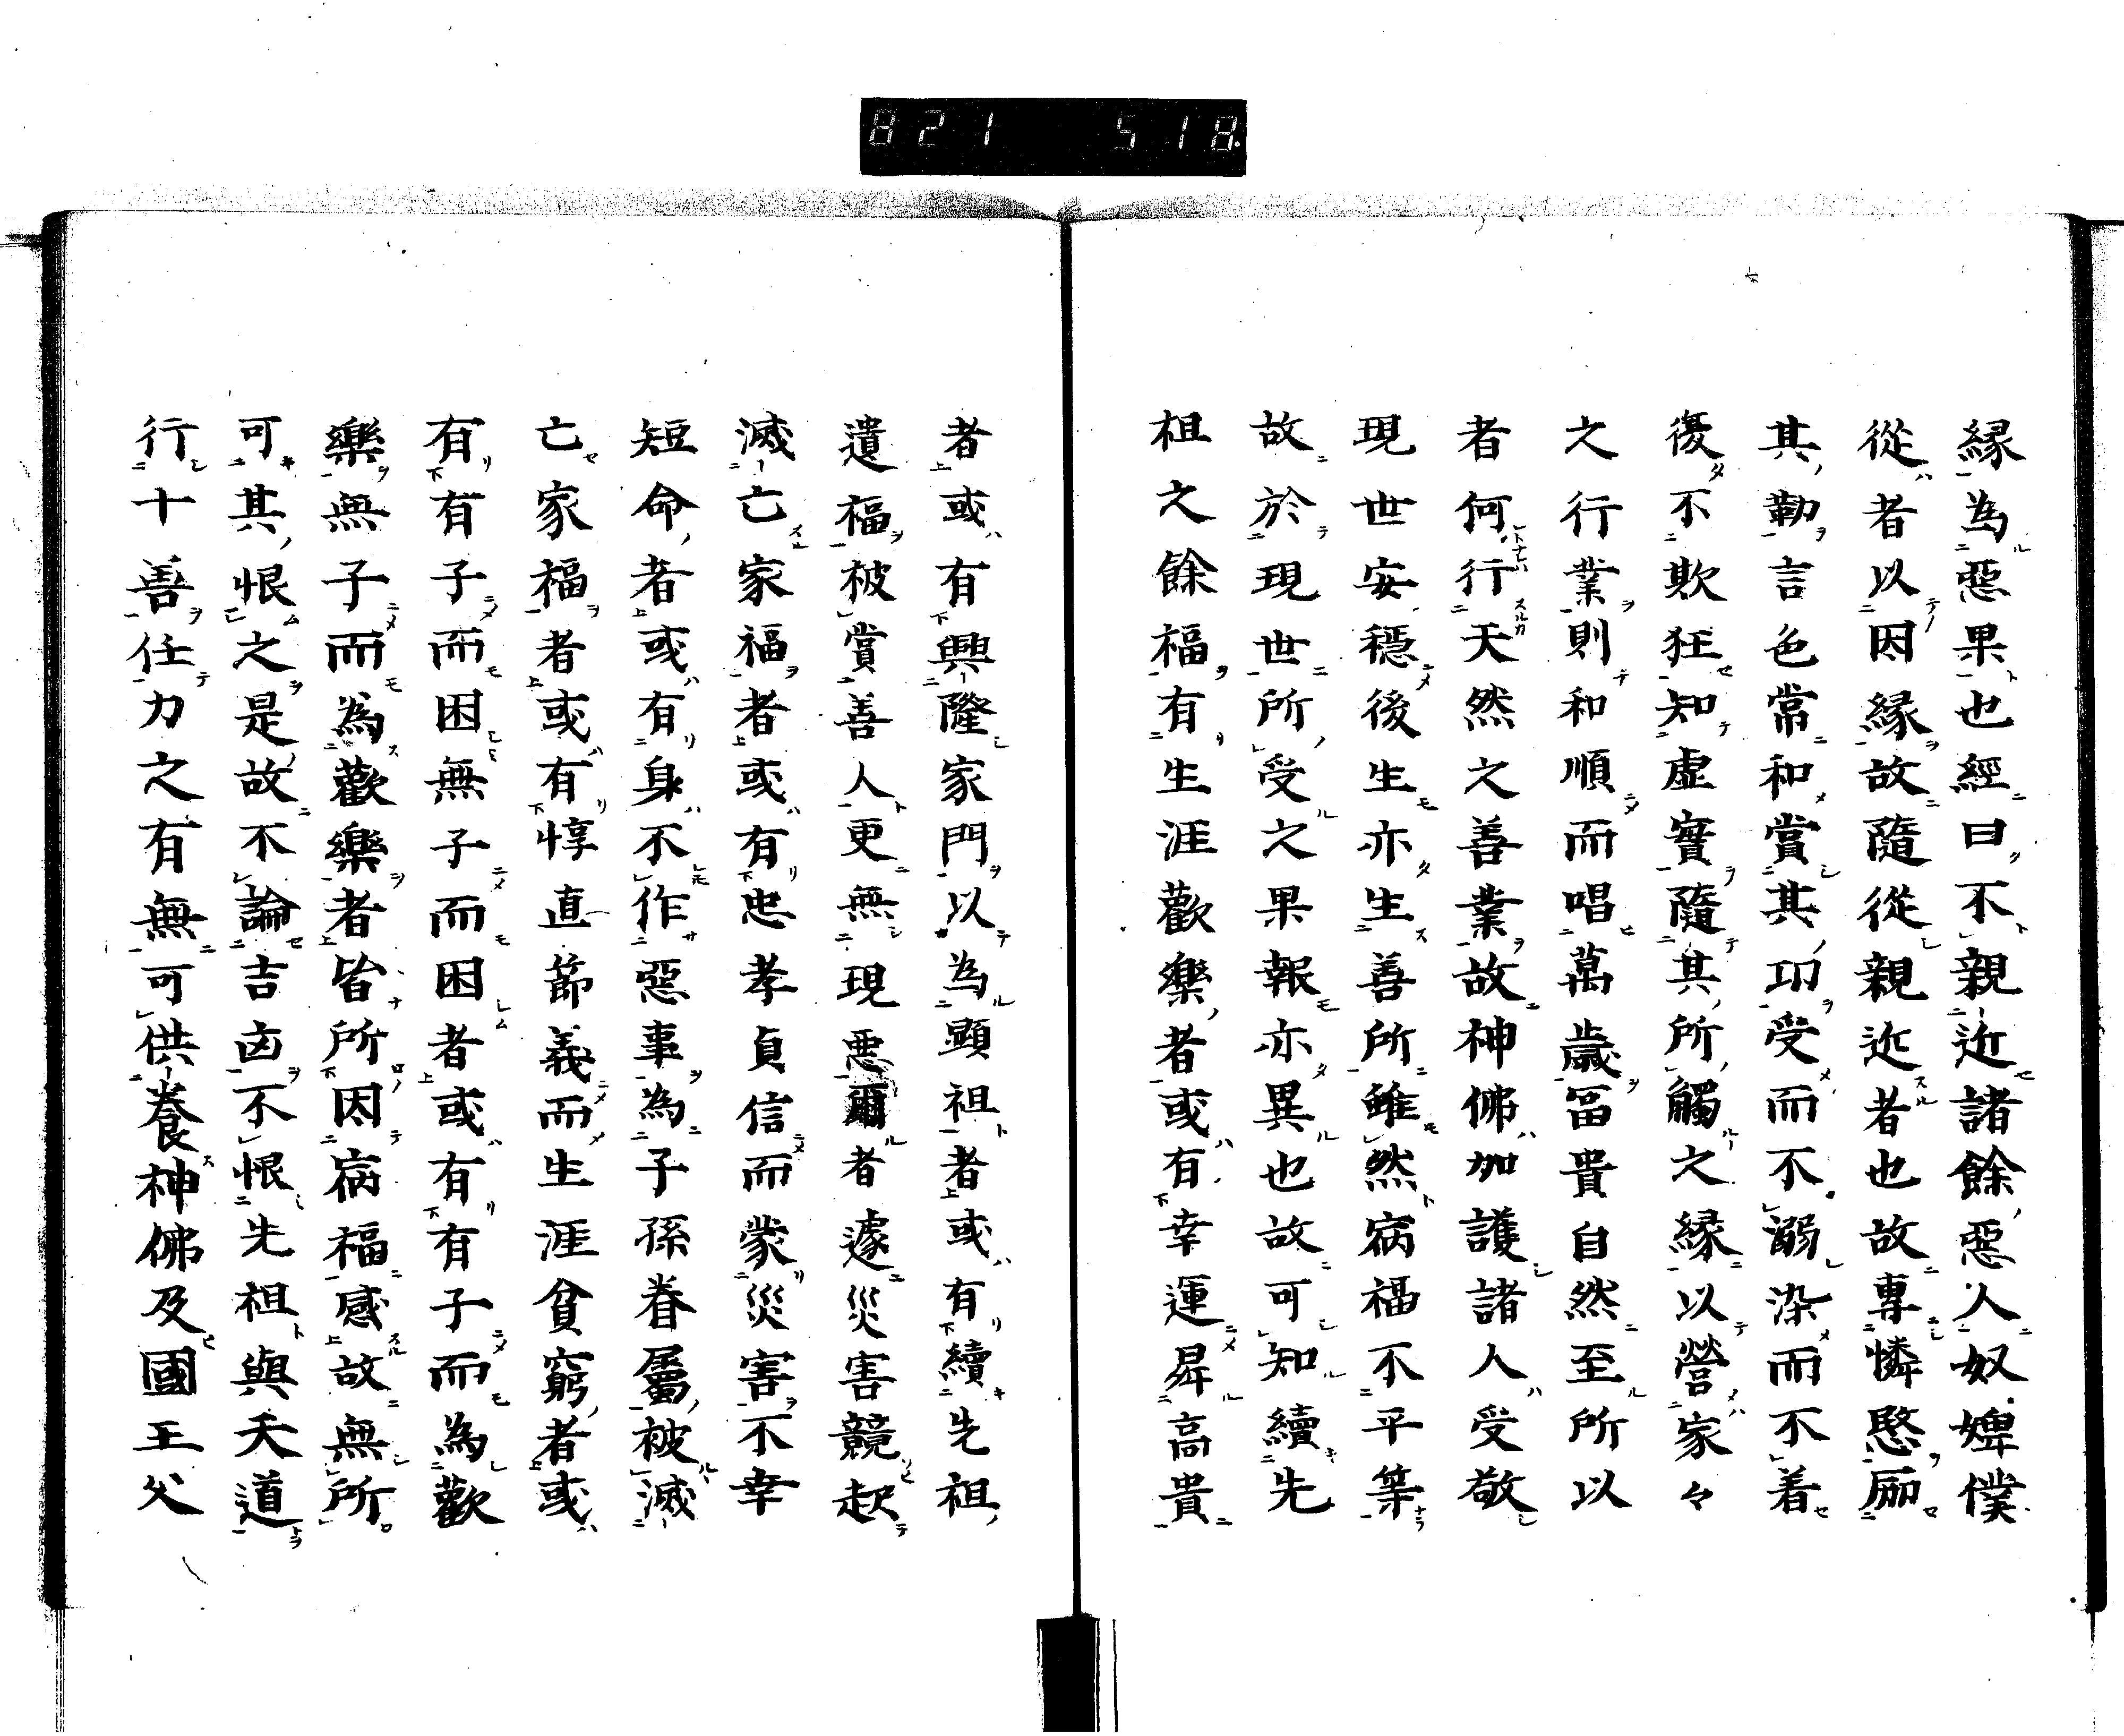 821 518
縁為惡果也經曰不親近諸餘惡人奴婢僕
從者以因縁故隨從親近者也故專憐愍
其勤言色常和賞其功受而不溺染而不着
復不欺狂知虚實隨其所觸之縁以營家々
之行業則和順而唱萬歳冨貴自然至所以
者何行天然之善業故神佛加護諸人受敬
現世安穏後生亦生善所雖然禍福不平等
故於現世所受之果報亦異也故可知續先
祖之餘福有生涯歡樂者或有幸運昇高貴
者或有興隆家門以為顕祖者或有續先祖
遺福被賞善人更無現悪爾者遽災害競起
滅亡家福者或有忠孝貞信而蒙災害不幸
短命者或有身不作惡事為子孫眷屬被滅
亡家福者或有惇直節義而生涯貧窮者或
有有子而困無子而困者或有有子而為歡
樂無子而為歡樂者皆所因禍福感故無所
可其恨之是故不論吉凶不恨先祖與天道
行十善任力之有無可供養神佛及國王父